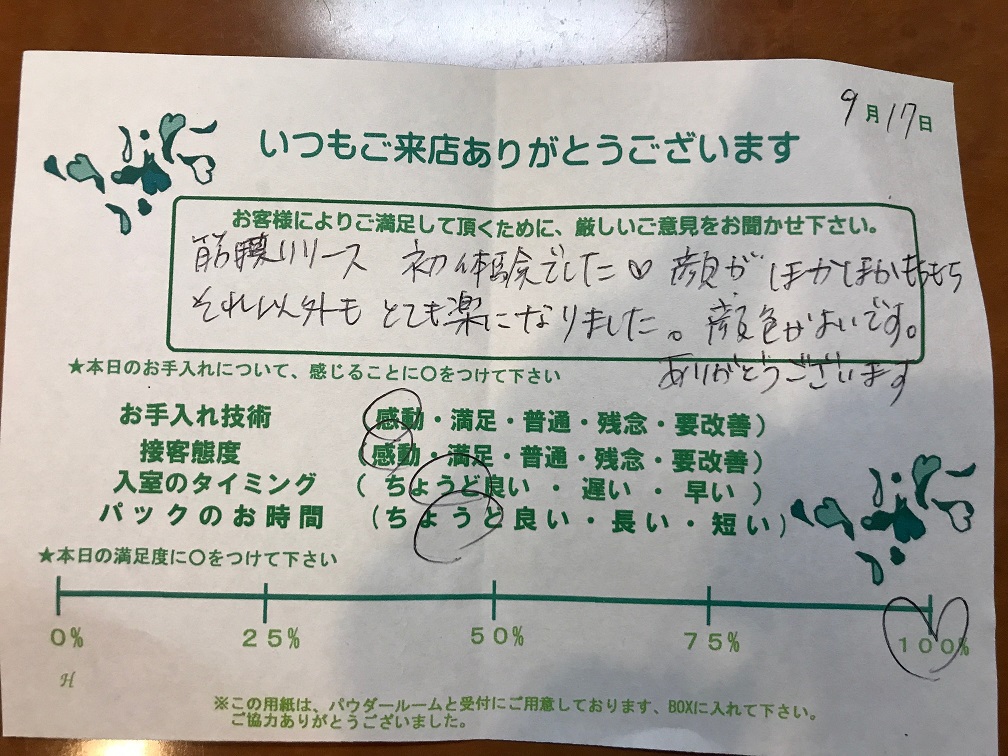 9月17日
いつもご来店ありがとうございます
お客様によりご満足して頂くために、厳しいご意見をお聞かせ下さい。
筋膜リリース 初体験でした♡ 顔がほかほかもちもち
それ以外も とても楽になりました。顔色がよいです。
ありがとうございます
★本日のお手入れについて、感じることに〇をつけて下さい
お手入れ技術 (感動・満足・普通・残念・要改善)
接客態度 (感動・満足・普通・残念・要改善)
入室のタイミング (ちょうど良い・遅い・早い)
パックのお時間 (ちょうど良い・長い・短い)
★本日の満足度に〇をつけて下さい
0% 25% 50% 75% 100%
H
※この用紙は、パウダールームと受付にご用意しております、BOXに入れて下さい。
ご協力ありがとうございました。